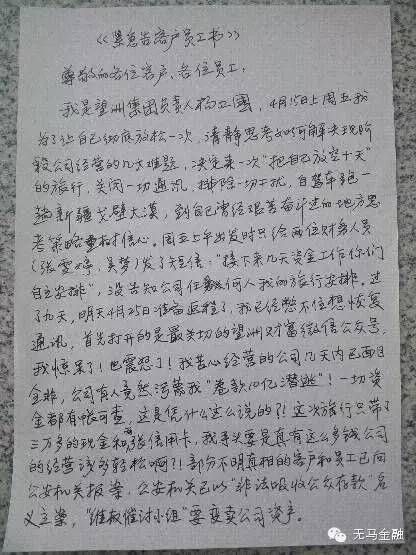 《紧急告客户员工书》
尊敬的各位客户、各位员工,
我是望洲集团负责人杨卫国,4月15日上周五我
为了让自己彻底放松一次,清静思考如何解决现阶
段公司经营的几大难题,决定来一次“把自己放空十天”
的旅行,关闭一切通讯,排除一切干扰,自驾车跑一
趟新疆戈壁大漠,到自己曾经艰苦奋斗过的地方思
考策略重树信心。周五上午出发时只给两位财务人员
(张雯婷、吴梦)发了短信:“接下来几天资金工作你们
自主安排”,没告知公司任何人我的旅行安排。过
了九天,明天4月25日准备返程了,我已经憋不住想恢复
通讯,首先打开的是最关切的望洲财富微信公众号,
我惊呆了!也震怒了!我苦心经营的公司几天内已面目
全非,公司有人竟然污蔑我“卷款10亿潜逃”!一切资
金都有帐可查,这是凭什么这么说的?!这次旅行只带了
三万多的现金和张信用卡,我手头要是真有这么多钱公司
的经营该多轻松啊?!部份不明真相的客户和员工已向
公安机关报案,公安机关已以“非法吸收公众存款”名
义立案,“维权催讨小组”要变卖公司资产。
无马金融